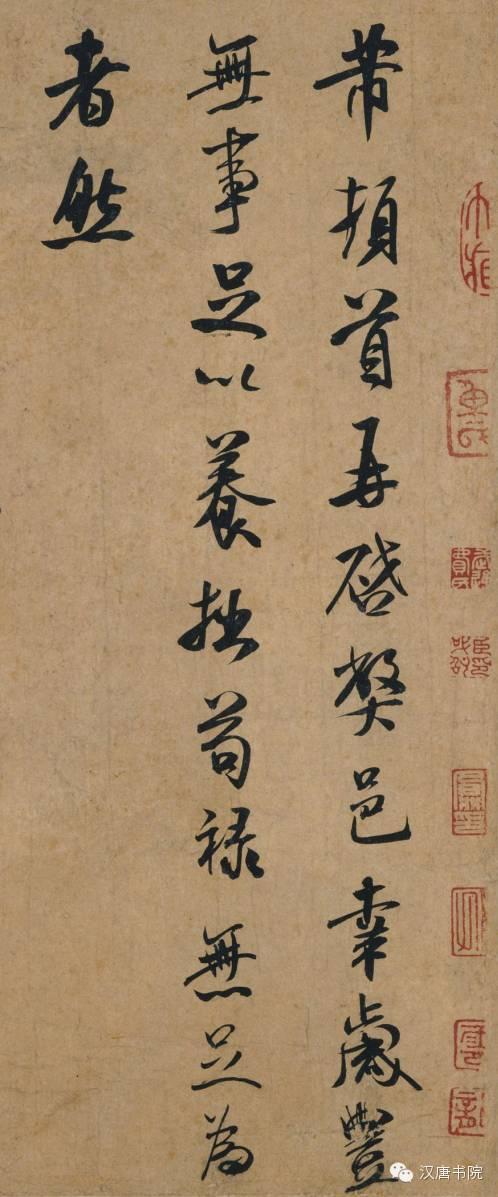 芾頓首再启弊邑幸歲豐
無事足以養拙苟禄無足為
者然
汉唐书院